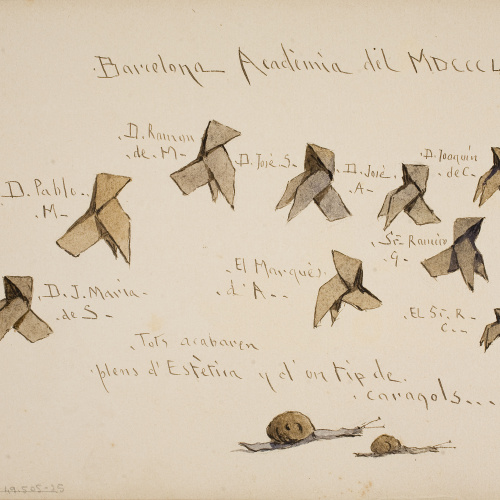 Barcelona Academia del MDCCCL
D. Ramon
de M-
D. José S-
D. José
A-
D. Joaquin
de C-
D. Pablo
M-
Sr. Ramiro
G-
El Marqués
d'A--
D. J. Maria
de S-
EL Sr. R-
C--
Tots acabaren
plens d'Estètica y d'un tip de
caragols...
49.505-25